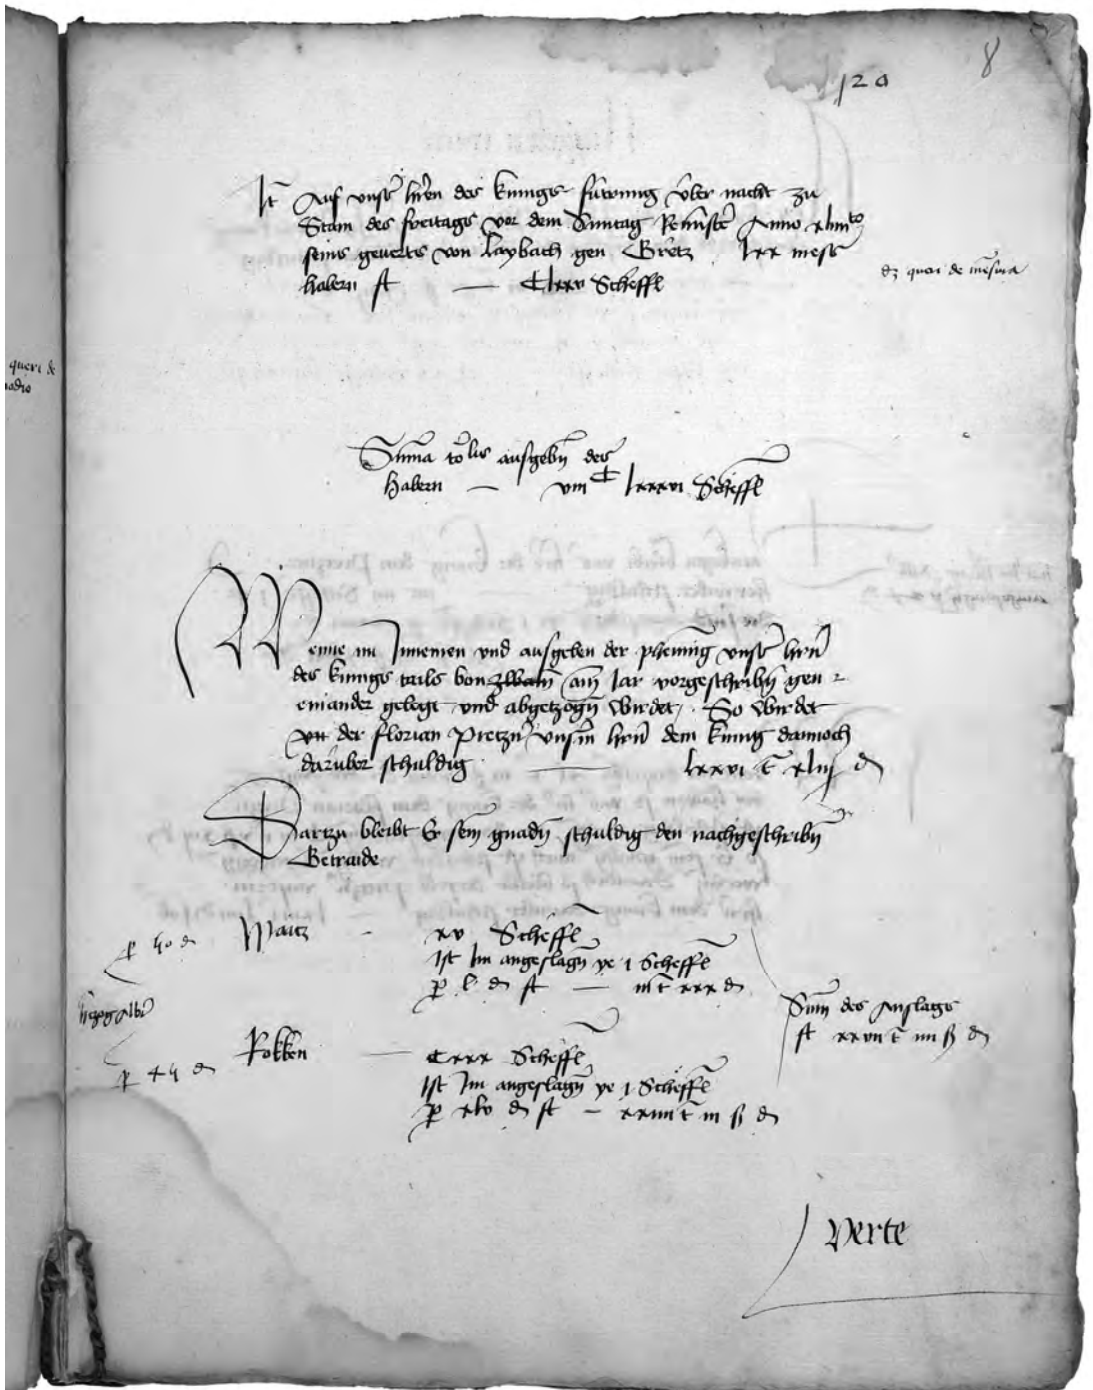 8
120
It Auf unser herren des kunigs futrung uber nacht zu
Stain des freitags vor dem Suntag Reminiscere Anno xliiiito
seins geverts von Laybach gen Gretz lxx mess
habern ft — Clxxv Scheffl
dz queri de mensura
queri de
Suma totlis ausgebn des
habern — viiiC lxxxvi Scheffl
Wenne im Innemen und ausgeben der phening unser hern
des kunigs tails von zwain ain Jar vorgeschribn gen
einander gelegt und abgetzogn wirdet, So wirdet
der florian unserm hern dem kunig dannoch
daruber schuldig — lxxvi t xliiii d
Dartzu bleibt Er sein gnadn schuldig den nachgeschribn
Getraide
p 50 d Waitz – xv Scheffl
Ist Im angeslagn ye 1 Scheffl
p l d ft — iii t xxx d
hertzog Albr
Sum des Anslags
ft xxvii t iiii ß d
p 45 d Rokken — Cxxx Scheffl
Ist Im angeslagn ye 1 Scheffl
p xlv d ft – xxiiii t iii ß d
verte